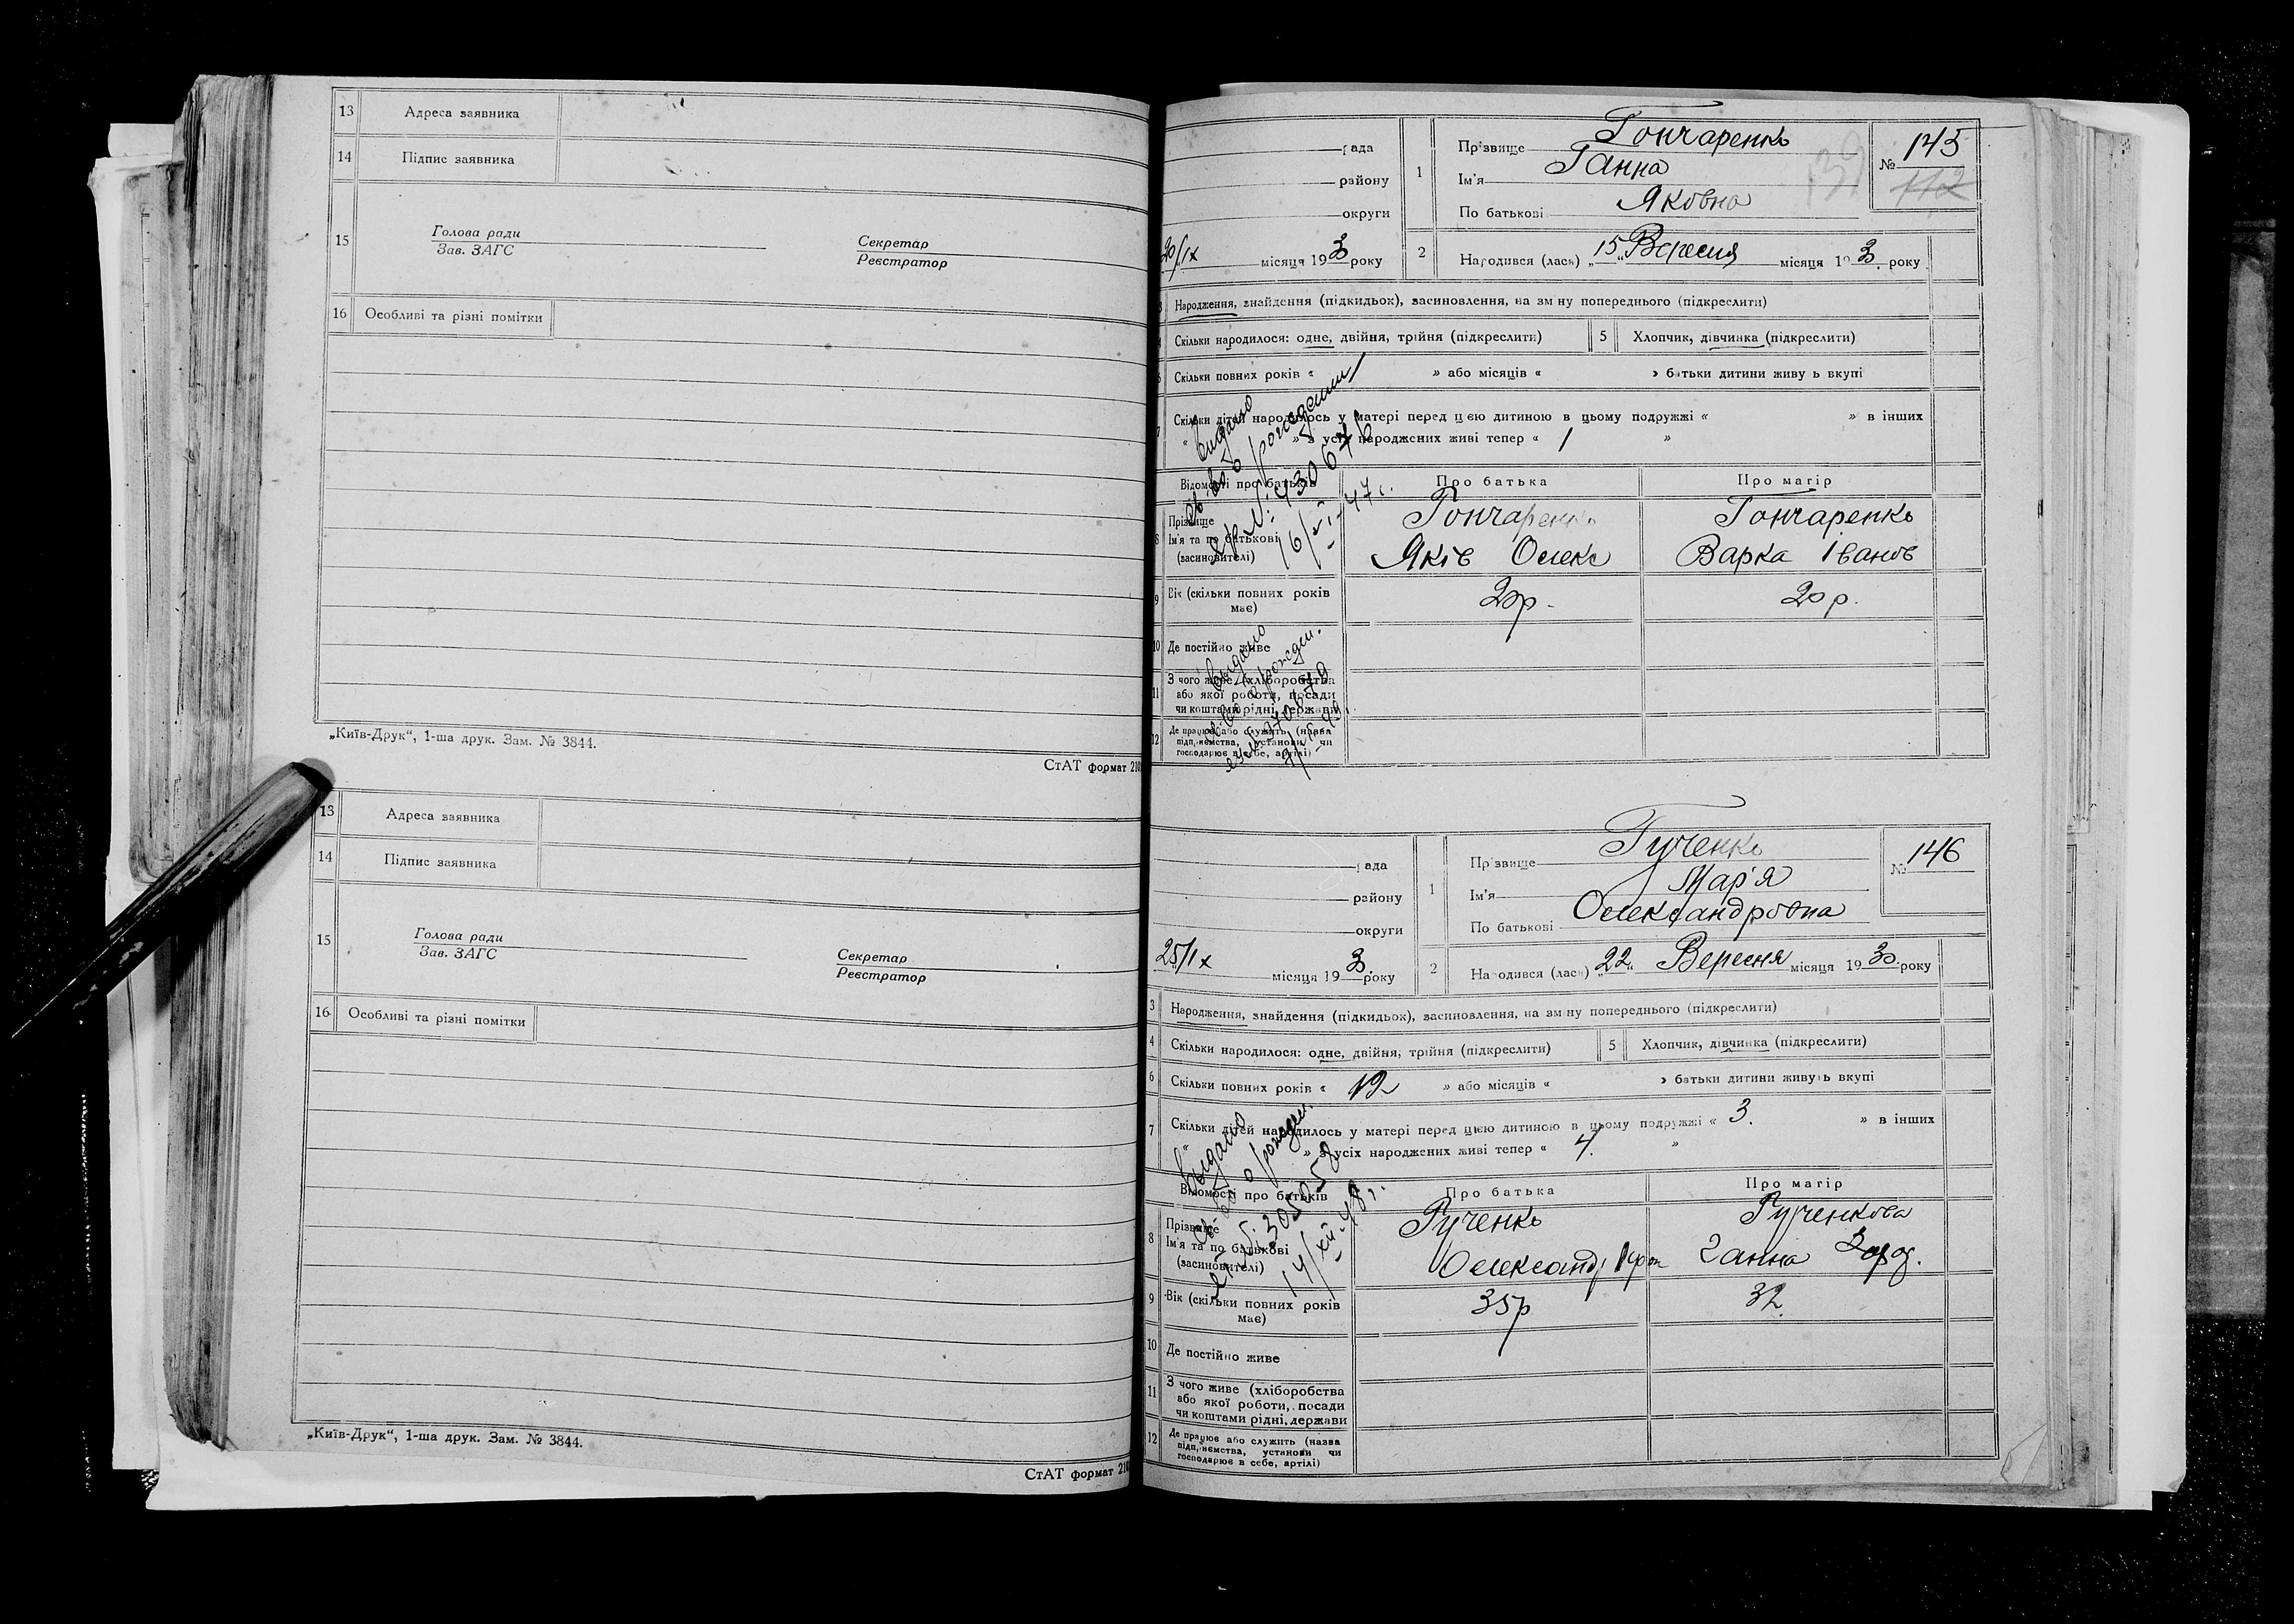 13 Адреса заявника
14 Підпис заявника
15 Голова ради
Зав. ЗАГС
Секретар
Реєстратор
16 Особливі та різні помітки
„Київ-Друк“, 1-ша друк. Зам. № 3844.
СтАТ формат 210
13 Адреса заявника
14 Підпис заявника
15 Голова ради
Зав. ЗАГС
Секретар
Реєстратор
16 Особливі та різні помітки
„Київ-Друк“, 1-ша друк. Зам. № 3844.
СтАТ формат 210
рада
району
округи
20/IX місяця 193 року
1 Прізвище Гончаренко
Ім'я Ганна
По батькові Яковна
№ 145
112
139
2 Народився (лась) „15“ Вересня місяця 193 року
3 Народження, знайдення (підкидьох), засиновлення, на зміну попереднього (підкреслити)
4 Скільки народилося: одне, двійня, трійня (підкреслити) 5 Хлопчик, дівчинка (підкреслити)
6 Скільки повних років « 1 » або місяців « » батьки дитини живуть вкупі
7 Скільки дітей народилось у матері перед цією дитиною в цьому подружжі « » в інших
« » з усіх народжених живі тепер « 1 »
Відомості про батьків Про батька Про матір
8 Прізвище
Ім'я та по батькові
(засиновителі)
Гончаренко
Яків Олекс
Гончаренко
Варка Іванов
9 Вік (скільки повних років має) 20р. 20 р.
10 Де постійно живе
11 З чого живе (хліборобства
або якої роботи, посади
чи коштами рідні, держави
12 Де працює або служить (назва
підприємства, установи чи
господарює в себе, артілі)
Видано
св-во о рожден
№ 430676
16/VI-47 г.
Видано
св-во о рожден.
рада
району
округи
25/IX місяця 193 року
1 Прізвище Гученко
Ім'я Мар'я
По батькові Олександровна
№ 146
2 Народився (лась) „22“ Вересня місяця 1930 року
3 Народження, знайдення (підкидьох), засиновлення, на зміну попереднього (підкреслити)
4 Скільки народилося: одне, двійня, трійня (підкреслити) 5 Хлопчик, дівчинка (підкреслити)
6 Скільки повних років « 12 » або місяців « » батьки дитини живуть вкупі
7 Скільки дітей народилось у матері перед цією дитиною в цьому подружжі « 3. » в інших
« » з усіх народжених живі тепер « 4. »
Відомості про батьків Про батька Про матір
8 Прізвище
Ім'я та по батькові
(засиновителі)
Гученко
Олександр
Гученкова
Ганна
9 Вік (скільки повних років має) 35р 32.
10 Де постійно живе
11 З чого живе (хліборобства
або якої роботи, посади
чи коштами рідні, держави
12 Де працює або служить (назва
підприємства, установи чи
господарює в себе, артілі)
Видано
св-во о рожден.
305058
14/XII-48 г.